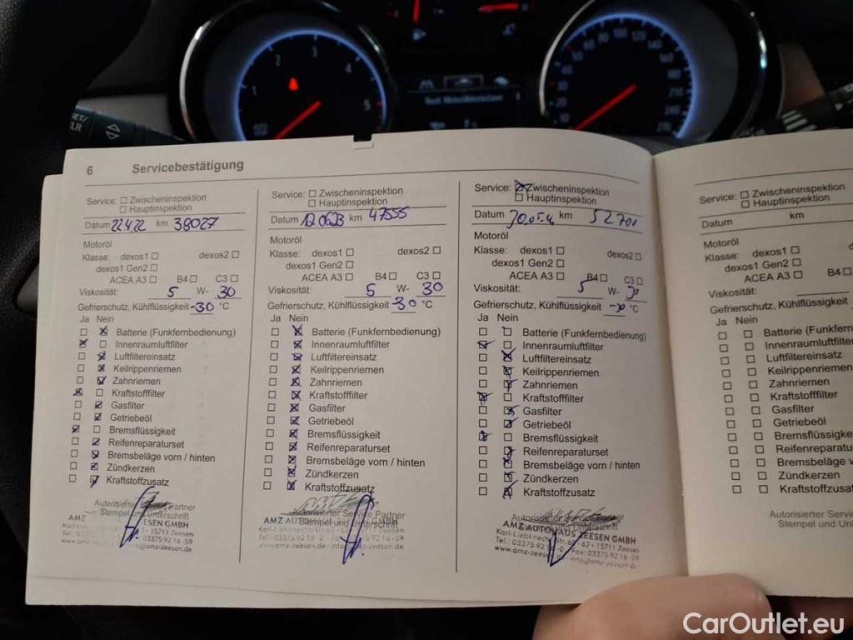 6 Servicebestätigung
Service: ☐ Zwischeninspektion
☐ Hauptinspektion
Datum 22.4.22 km 38027
Motoröl
Klasse: dexos1 ☐ dexos2 ☐
dexos1 Gen2 ☐
ACEA A3 ☐ B4 ☐ C3 ☐
Viskosität: 5 W- 30
Gefrierschutz, Kühlflüssigkeit -30 °C
Ja Nein
☐ ☒ Batterie (Funkfernbedienung)
☒ ☐ Innenraumluftfilter
☐ ☒ Luftfiltereinsatz
☐ ☒ Keilrippenriemen
☐ ☒ Zahnriemen
☒ ☐ Kraftstofffilter
☐ ☒ Gasfilter
☐ ☒ Getriebeöl
☒ ☐ Bremsflüssigkeit
☐ ☒ Reifenreparaturset
☐ ☒ Bremsbeläge vorn / hinten
☐ ☒ Zündkerzen
☐ ☒ Kraftstoffzusatz
Stempel und Unterschrift
AMZ ESEN GMBH
15711 Zeesen
Service: ☐ Zwischeninspektion
☐ Hauptinspektion
Datum 12.06.23 km 47555
Motoröl
Klasse: dexos1 ☐ dexos2 ☐
dexos1 Gen2 ☐
ACEA A3 ☐ B4 ☐ C3 ☐
Viskosität: 5 W- 30
Gefrierschutz, Kühlflüssigkeit -30 °C
Ja Nein
☐ ☒ Batterie (Funkfernbedienung)
☐ ☒ Innenraumluftfilter
☐ ☒ Luftfiltereinsatz
☐ ☒ Keilrippenriemen
☐ ☒ Zahnriemen
☐ ☒ Kraftstofffilter
☐ ☒ Gasfilter
☐ ☒ Getriebeöl
☐ ☒ Bremsflüssigkeit
☐ ☒ Reifenreparaturset
☐ ☒ Bremsbeläge vorn / hinten
☐ ☒ Zündkerzen
☐ ☒ Kraftstoffzusatz
Autorisierter Service Partner
Stempel und Unterschrift
Service: ☒ Zwischeninspektion
☐ Hauptinspektion
Datum km 52701
Motoröl
Klasse: dexos1 ☐ dexos2 ☐
dexos1 Gen2 ☐
ACEA A3 ☐ B4 ☐ C3 ☐
Viskosität: 5 W- 30
Gefrierschutz, Kühlflüssigkeit °C
Ja Nein
☐ ☐ Batterie (Funkfernbedienung)
☒ ☐ Innenraumluftfilter
☐ ☒ Luftfiltereinsatz
☐ ☒ Keilrippenriemen
☐ ☒ Zahnriemen
☒ ☐ Kraftstofffilter
☐ ☒ Gasfilter
☐ ☒ Getriebeöl
☒ ☐ Bremsflüssigkeit
☐ ☒ Reifenreparaturset
☐ ☒ Bremsbeläge vorn / hinten
☐ ☒ Zündkerzen
☐ ☒ Kraftstoffzusatz
AMZ AUTOHAUS ZEESEN GMBH
15711 Zeesen
www.amz-zeesen.de info@amz-zeesen.de
Service: ☐ Zwischeninspektion
☐ Hauptinspektion
Datum km
Motoröl
Klasse: dexos1 ☐
dexos1 Gen2 ☐
ACEA A3 ☐ B4 ☐
Viskosität:
Gefrierschutz, Kühlflüssigkeit
Ja Nein
☐ ☐ Batterie (Funkfern
☐ ☐ Innenraumluftfilte
☐ ☐ Luftfiltereinsatz
☐ ☐ Keilrippenriemen
☐ ☐ Zahnriemen
☐ ☐ Kraftstofffilter
☐ ☐ Gasfilter
☐ ☐ Getriebeöl
☐ ☐ Bremsflüssigke
☐ ☐ Reifenreparatu
☐ ☐ Bremsbeläge v
☐ ☐ Zündkerzen
☐ ☐ Kraftstoffzusat
Autorisierter Servi
Stempel und Unt
CarOutlet.eu